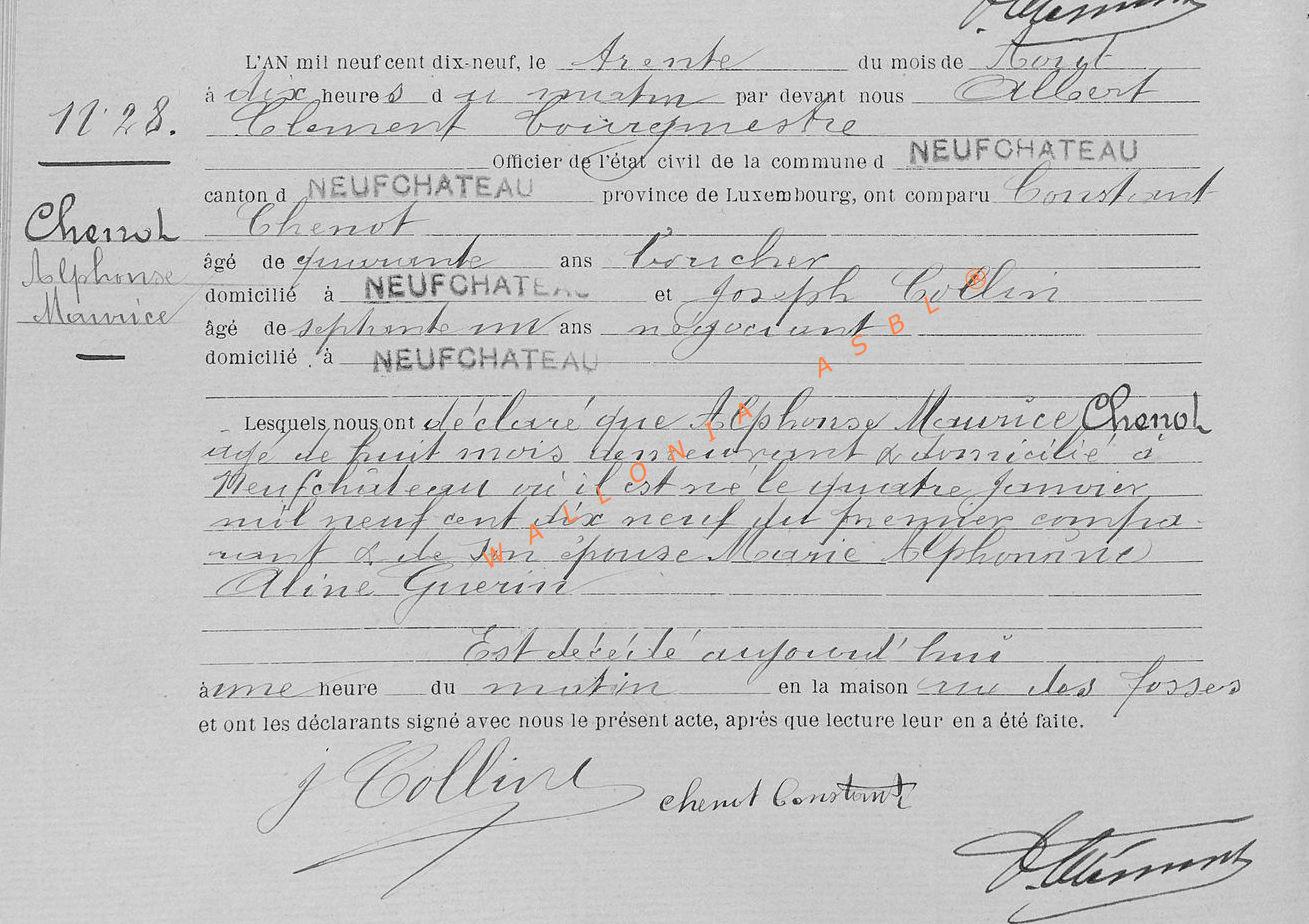 L'AN mil neuf cent dix-neuf, le trente du mois de Aout
à dix heures du matin par devant nous Albert
N° 28. Clement bourgmestre
Officier de l'état civil de la commune d NEUFCHATEAU
canton d NEUFCHATEAU province de Luxembourg, ont comparu Constant
Chenot Chenot
Alphonse âgé de quarante ans boucher
domicilié à NEUFCHATEAU et Joseph Collin
Maurice âgé de septante un ans négociant
domicilié à NEUFCHATEAU
Lesquels nous ont déclaré que Alphonse Maurice Chenot
agé de huit mois demeurant & domicilié à
Neufchâteau où il est né le quatre Janvier
mil neuf cent dix neuf du premier compa-
rant & de son épouse Marie Alphonsine
Aline Guerin
Est décédé aujourd'hui
à une heure du matin en la maison rue des fosses
et ont les déclarants signé avec nous le présent acte, après que lecture leur en a été faite.
J Collin chenot Constant
Clément
WALLONIA ASBL ®